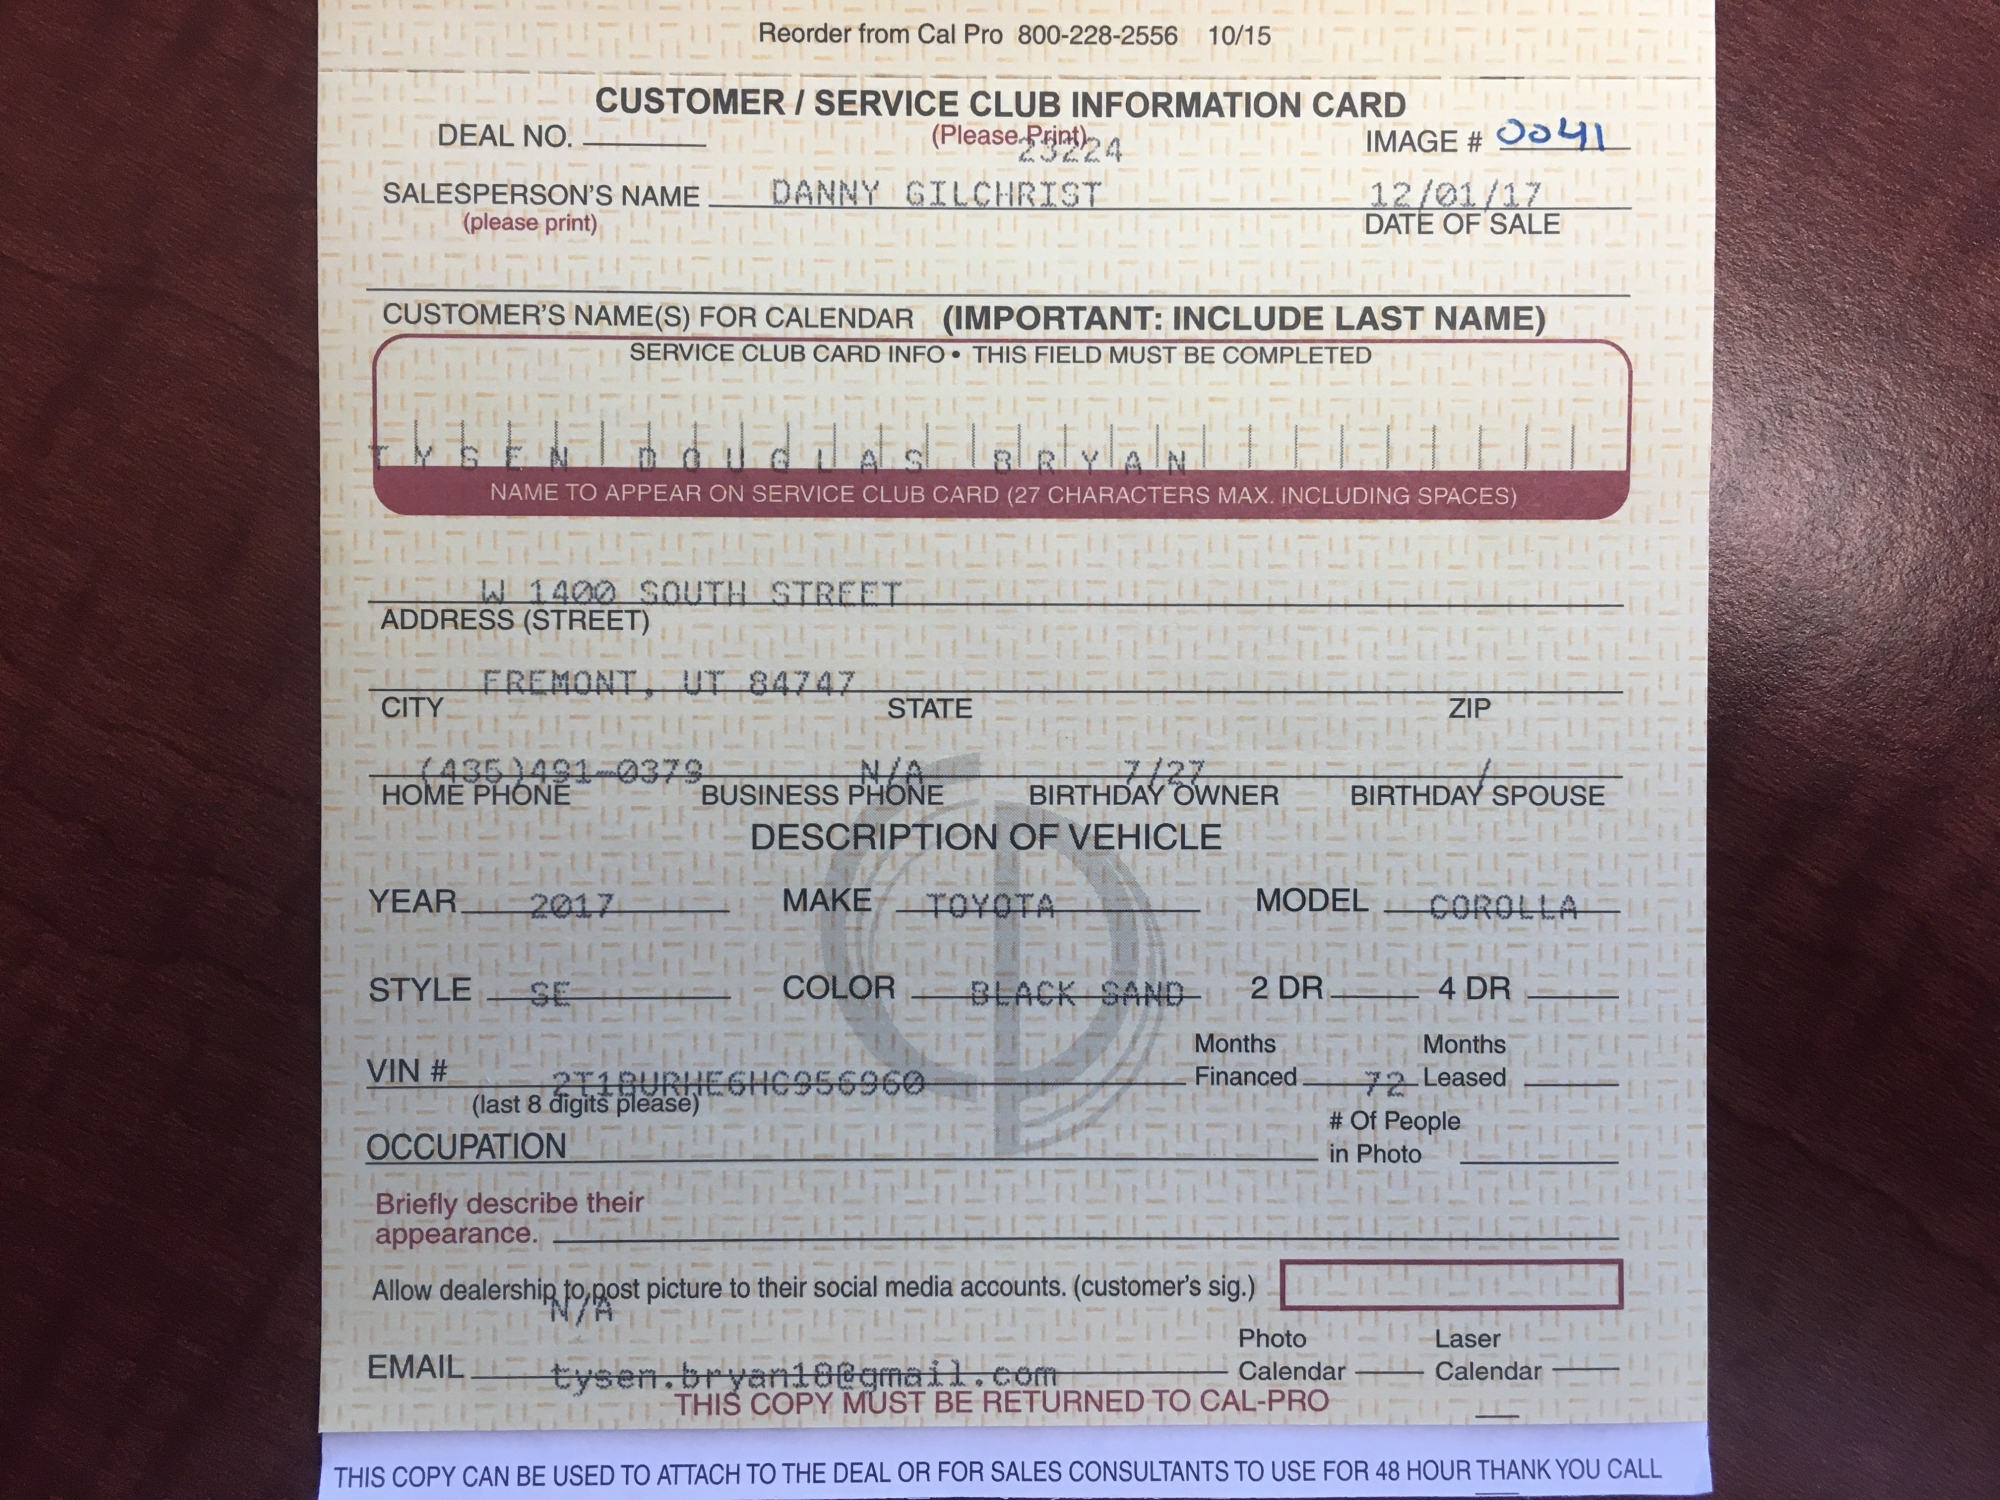 Reorder from Cal Pro 800-228-2556 10/15
CUSTOMER / SERVICE CLUB INFORMATION CARD
DEAL NO. (Please Print) IMAGE # 0041
23224
SALESPERSON'S NAME DANNY GILCHRIST 12/01/17
(please print) DATE OF SALE
CUSTOMER'S NAME(S) FOR CALENDAR (IMPORTANT: INCLUDE LAST NAME)
SERVICE CLUB CARD INFO • THIS FIELD MUST BE COMPLETED
TYSEN DOUGLAS BRYAN
NAME TO APPEAR ON SERVICE CLUB CARD (27 CHARACTERS MAX. INCLUDING SPACES)
W 1400 SOUTH STREET
ADDRESS (STREET)
FREMONT, UT 84747
CITY STATE ZIP
(435)491-0379 N/A 7/27 /
HOME PHONE BUSINESS PHONE BIRTHDAY OWNER BIRTHDAY SPOUSE
DESCRIPTION OF VEHICLE
YEAR 2017 MAKE TOYOTA MODEL COROLLA
STYLE SE COLOR BLACK SAND 2 DR 4 DR
Months Months
VIN # 2T1BURHE6HC956960 Financed 72 Leased
(last 8 digits please)
# Of People
OCCUPATION in Photo
Briefly describe their
appearance.
Allow dealership to post picture to their social media accounts. (customer's sig.)
N/A
Photo Laser
EMAIL tysen.bryan18@gmail.com Calendar Calendar
THIS COPY MUST BE RETURNED TO CAL-PRO
THIS COPY CAN BE USED TO ATTACH TO THE DEAL OR FOR SALES CONSULTANTS TO USE FOR 48 HOUR THANK YOU CALL